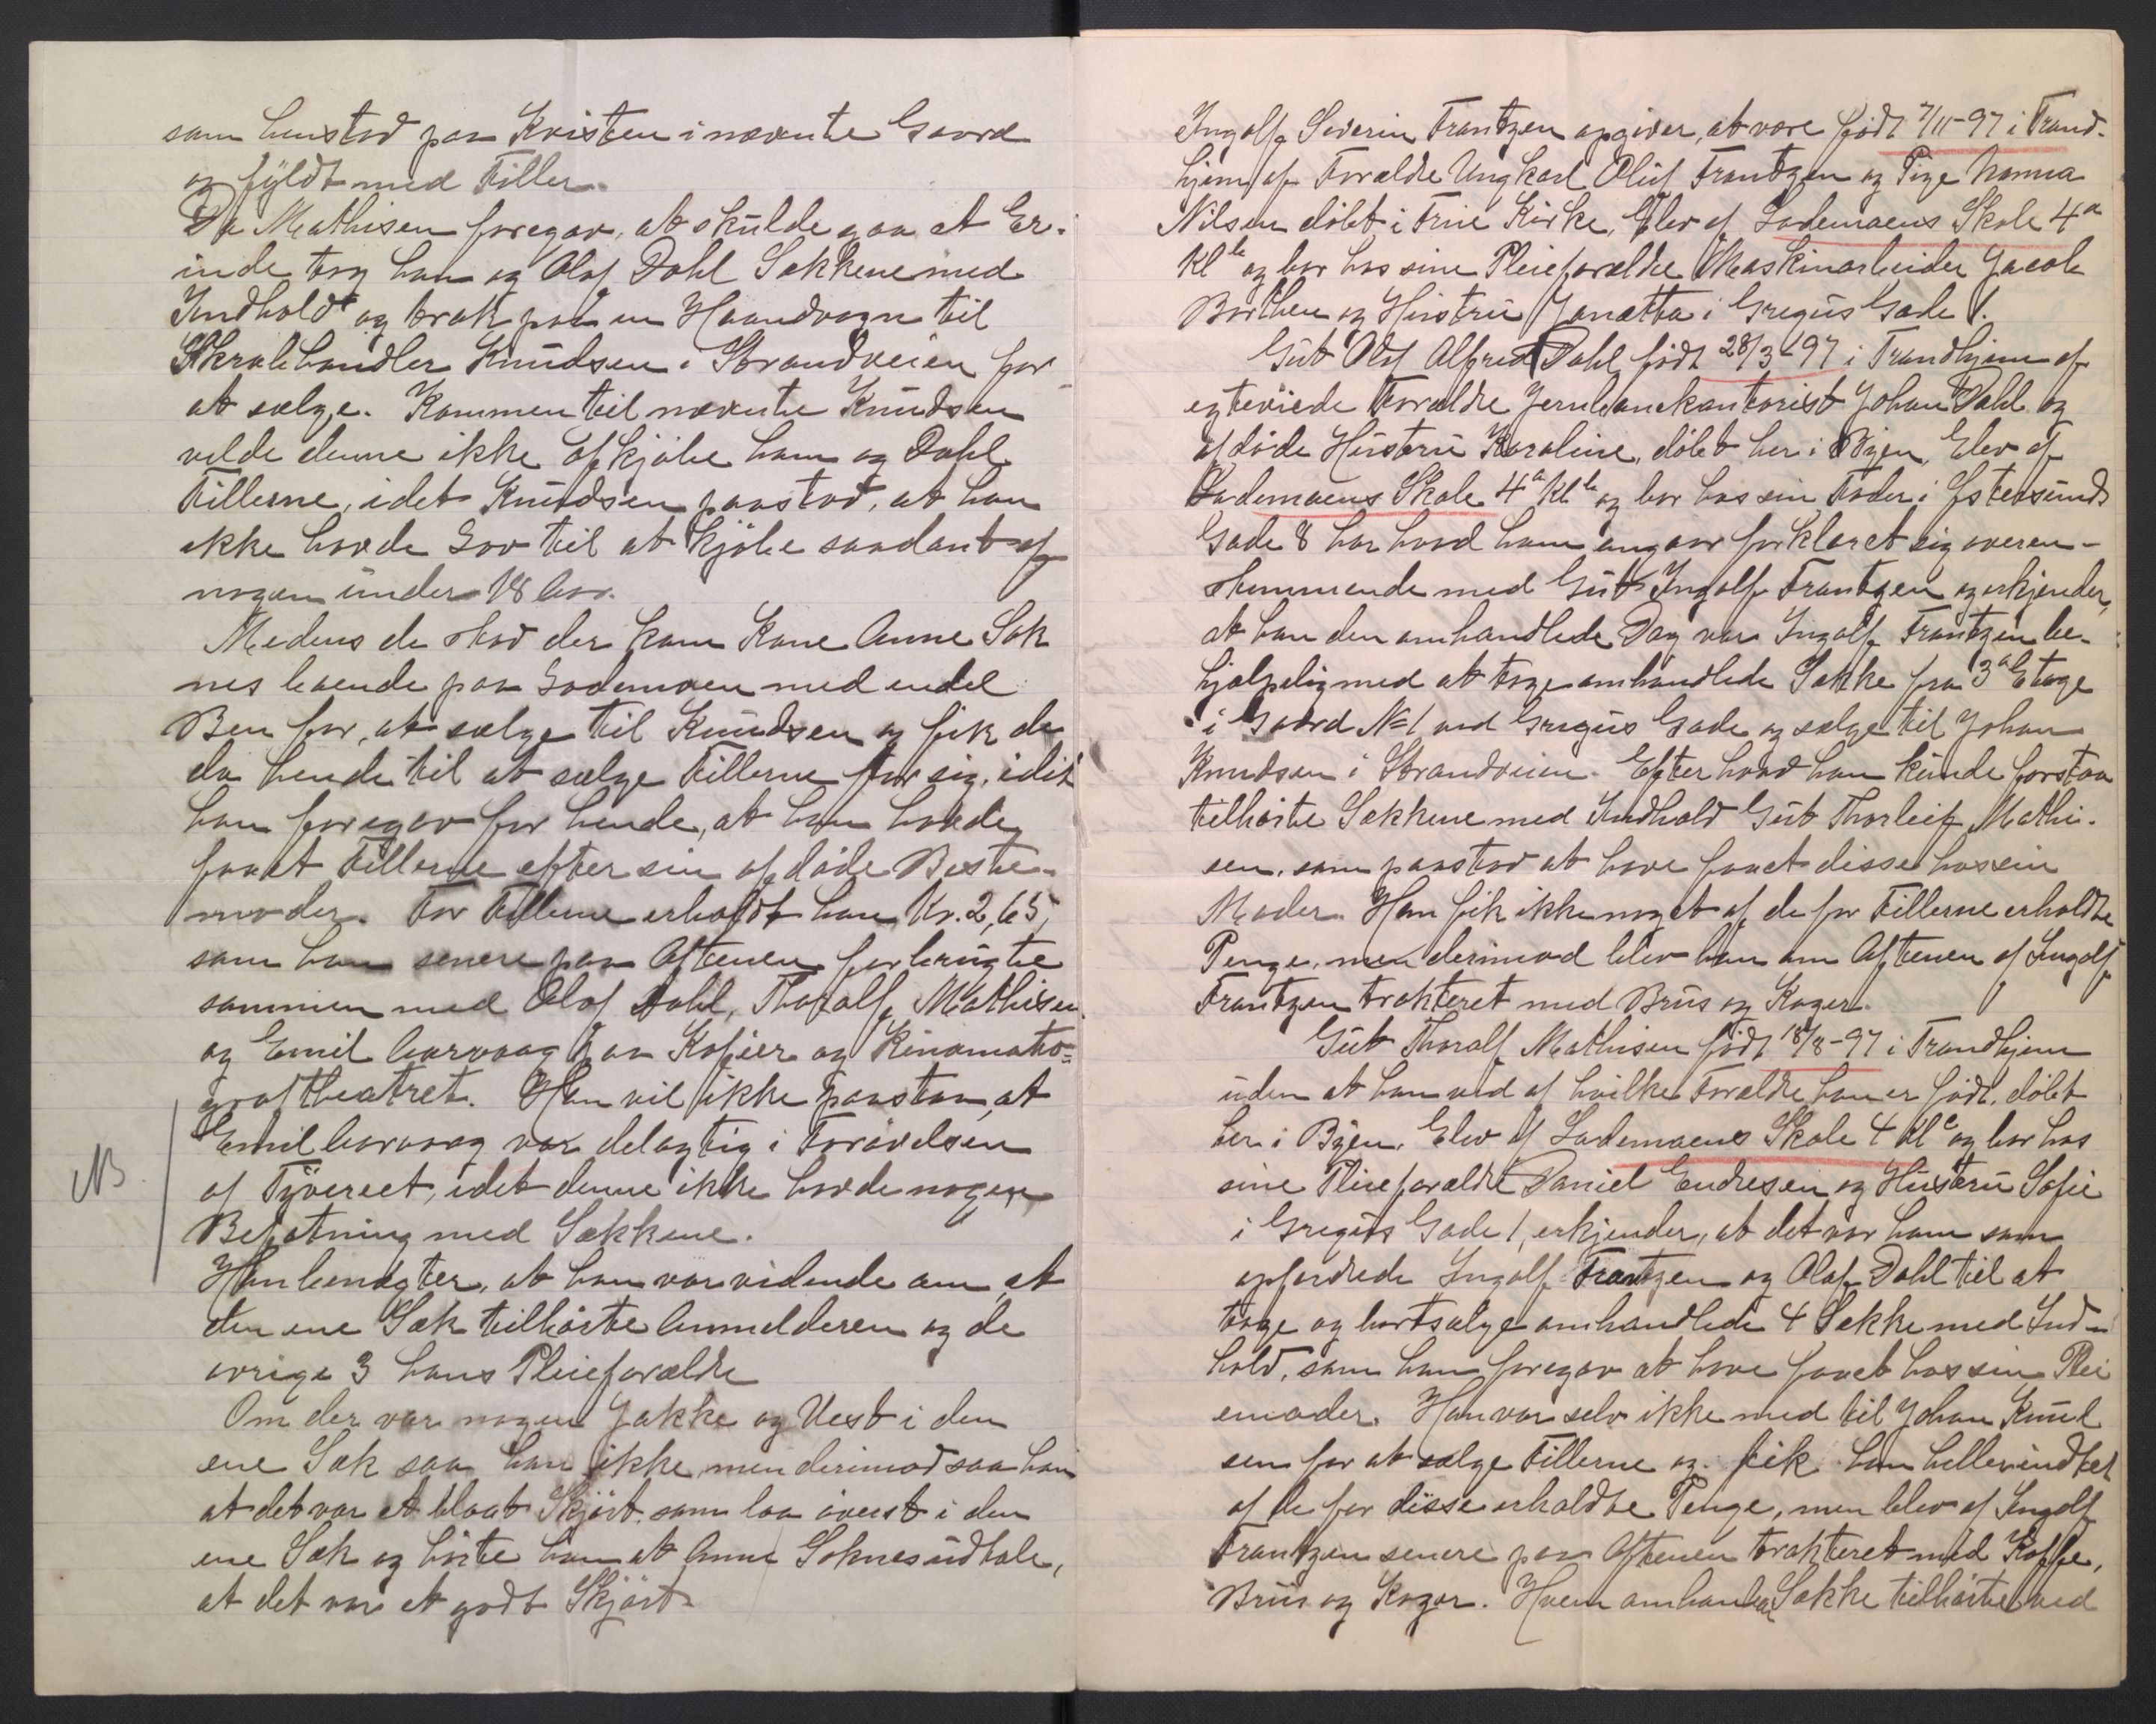 som henstod paa Kvisten i nævnte Gaard
og fyldt med Filler.
Da Mathisen foregav, at skulde gaa et Er-
inde tog han og Olaf Dahl Sækkene med
Indhold og trak paa en Haandvogn til
Skrabhandler Knudsen i Strandveien for
at sælge. Kommen til nævnte Knudsen
vilde denne ikke afkjøbe ham og Dahl
Fillerne, idet Knudsen paastod, at han
ikke havde Lov til at kjøbe saadant af
nogen under 18 Aar.
Medens de stod der kom Kone Anne Sok
nes boende paa Lademoen med endel
Ben for, at sælge til Knudsen og fik de
da hende til at sælge Fillerne for sig, idet
han foregav for hende, at han havde
faaet Fillerne efter sin afdøde Beste-
moder. For Fillerne erholdt han Kr. 2,65,
som han senere paa Aftenen forbrugte
sammen med Olaf Dahl, Thoralf Mathisen
og Emil Aarvaag paa Kafeer og Kinomato-
graftheatret. Han vil ikke paastaa, at
Emil Aarvaag var delagtig i Forøvelsen
NB.
af Tyveriet, idet denne ikke havde nogen
Befatning med Sækkene.
Han benægter, at han var vidende om, at
den ene Sæk tilhørte Anmelderen og de
øvrige 3 hans Pleieforældre
Om der var nogen Jakke og Vest i den
ene Sæk saa han ikke, men derimod saa han
at det var et blaat Skjørt, som laa øverst i den
ene Sæk og hørte han at Anne Soknes udtale,
at det var et godt Skjørt.
Ingolf Severin Frantzen opgiver, at være født 7/11-97 i Trond-
hjem af Forældre Ungkarl Oluf Frantzen og Pige Nanna
Nilsen døbt i Frue Kirke, Elev af Lademoens Skole 4a
Kl b og bor hos sine Pleieforældre Maskinarbeider Jacob
Borthen og Hustru Janetta i Gregus Gade 1.
Gut Olaf Alfred Dahl født 28/3-97 i Trondhjem af
egteviede Forældre Jernbanekontorist Johan Dahl og
afdøde Hustru Karoline, døbt her i Byen, Elev af
Lademoens Skole 4a Kl b og bor hos sin Fader i Østersunds
Gade 8 har hvad ham angaar forklaret sig overen-
stemmende med Gut Ingolf Frantzen og erkjender,
at han den omhandlede Dag var Ingolf Frantzen be-
hjælpelig med at tage omhandlede Sække fra 3die Etage
i Gaard No 1 ved Gregus Gade og sælge til Johan
Knudsen i Strandveien. Efter hvad han kunde forstaa
tilhørte Sækkene med Indhold Gut Thorleif Mathi-
sen, som paastod at have faaet disse hos sin
Moder. Han fik ikke noget af de for Fillerne erholdte
Penge, men derimod blev han om Aftenen af Ingolf
Frantzen trakteret med Brus og Kager.
Gut Thoralf Mathisen født 18/8-97 i Trondhjem
uden at han ved af hvilke Forældre han er født, døbt
her i Byen. Elev af Lademoens Skole 4 Kl c og bor hos
sine Pleieforældre Daniel Endresen og Hustru Sofie
i Gregus Gade 1, erkjender, at det var ham som
opfordrede Ingolf Frantzen og Olaf Dahl til at
tage og bortsælge omhandlede 4 Sække med Ind-
hold, som han foregav at have faaet hos sin Plei
emoder. Han var selv ikke med til Johan Knud
sen for at sælge Fillerne og fik han heller intet
af de for disse erholdte Penge, men blev af Ingolf
Frantzen senere paa Aftenen trakteret med Kaffe,
Brus og Kager. Hvem omhandl Sække tilhørte ved